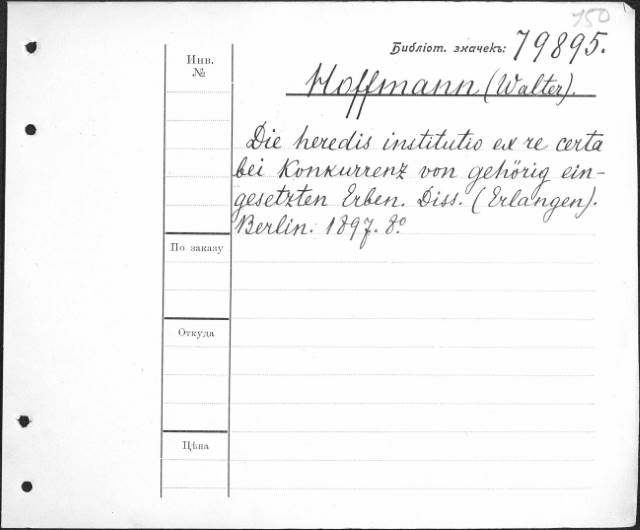 150
Библіот. значекъ: 79895.
Инв.
№
Hoffmann (Walter).
Die heredis institutio ex re certa
bei Konkurrenz von gehörig ein-
gesetzten Erben. Diss. (Erlangen).
Berlin. 1897. 8º
По заказу
Откуда
Цѣна